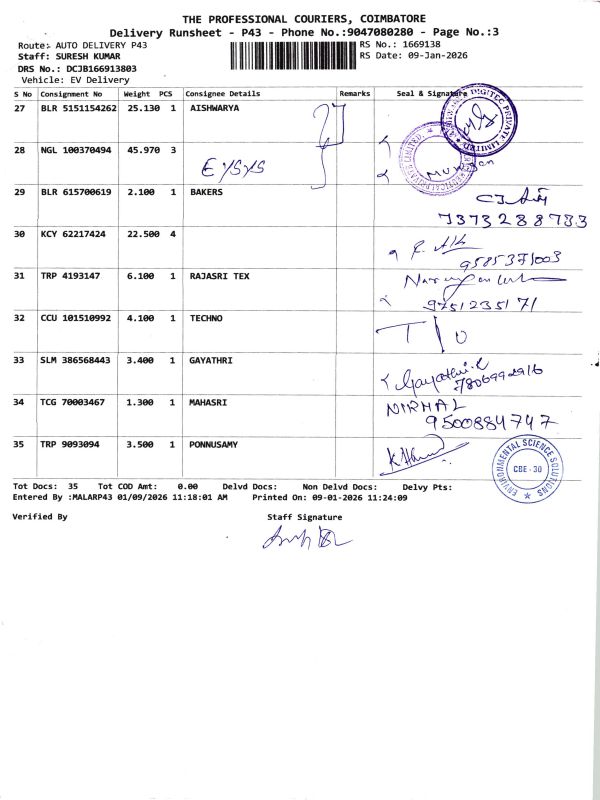 THE PROFESSIONAL COURIERS, COIMBATORE
Delivery Runsheet - P43 - Phone No.:9047080280 - Page No.:3
Route: AUTO DELIVERY P43
RS No.: 1669138
Staff: SURESH KUMAR
RS Date: 09-Jan-2026
DRS No.: DCJB166913803
Vehicle: EV Delivery
S No Consignment No Weight PCS Consignee Details Remarks Seal & Signature
27 BLR 5151154262 25.130 1 AISHWARYA
28 NGL 100370494 45.970 3
Murugan
29 BLR 615700619 2.100 1 BAKERS
7373288733
30 KCY 62217424 22.500 4
9585371003
31 TRP 4193147 6.100 1 RAJASRI TEX
9751235171
32 CCU 101510992 4.100 1 TECHNO
33 SLM 386568443 3.400 1 GAYATHRI
Gayathri.R
7806992916
34 TCG 70003467 1.300 1 MAHASRI
NIRMAL
9500884747
35 TRP 9093094 3.500 1 PONNUSAMY
ENVIRONMENTAL SCIENCE SOLUTIONS
CBE - 30
Tot Docs: 35 Tot COD Amt: 0.00 Delvd Docs: Non Delvd Docs: Delvy Pts:
Entered By :MALARP43 01/09/2026 11:18:01 AM Printed On: 09-01-2026 11:24:09
Verified By Staff Signature